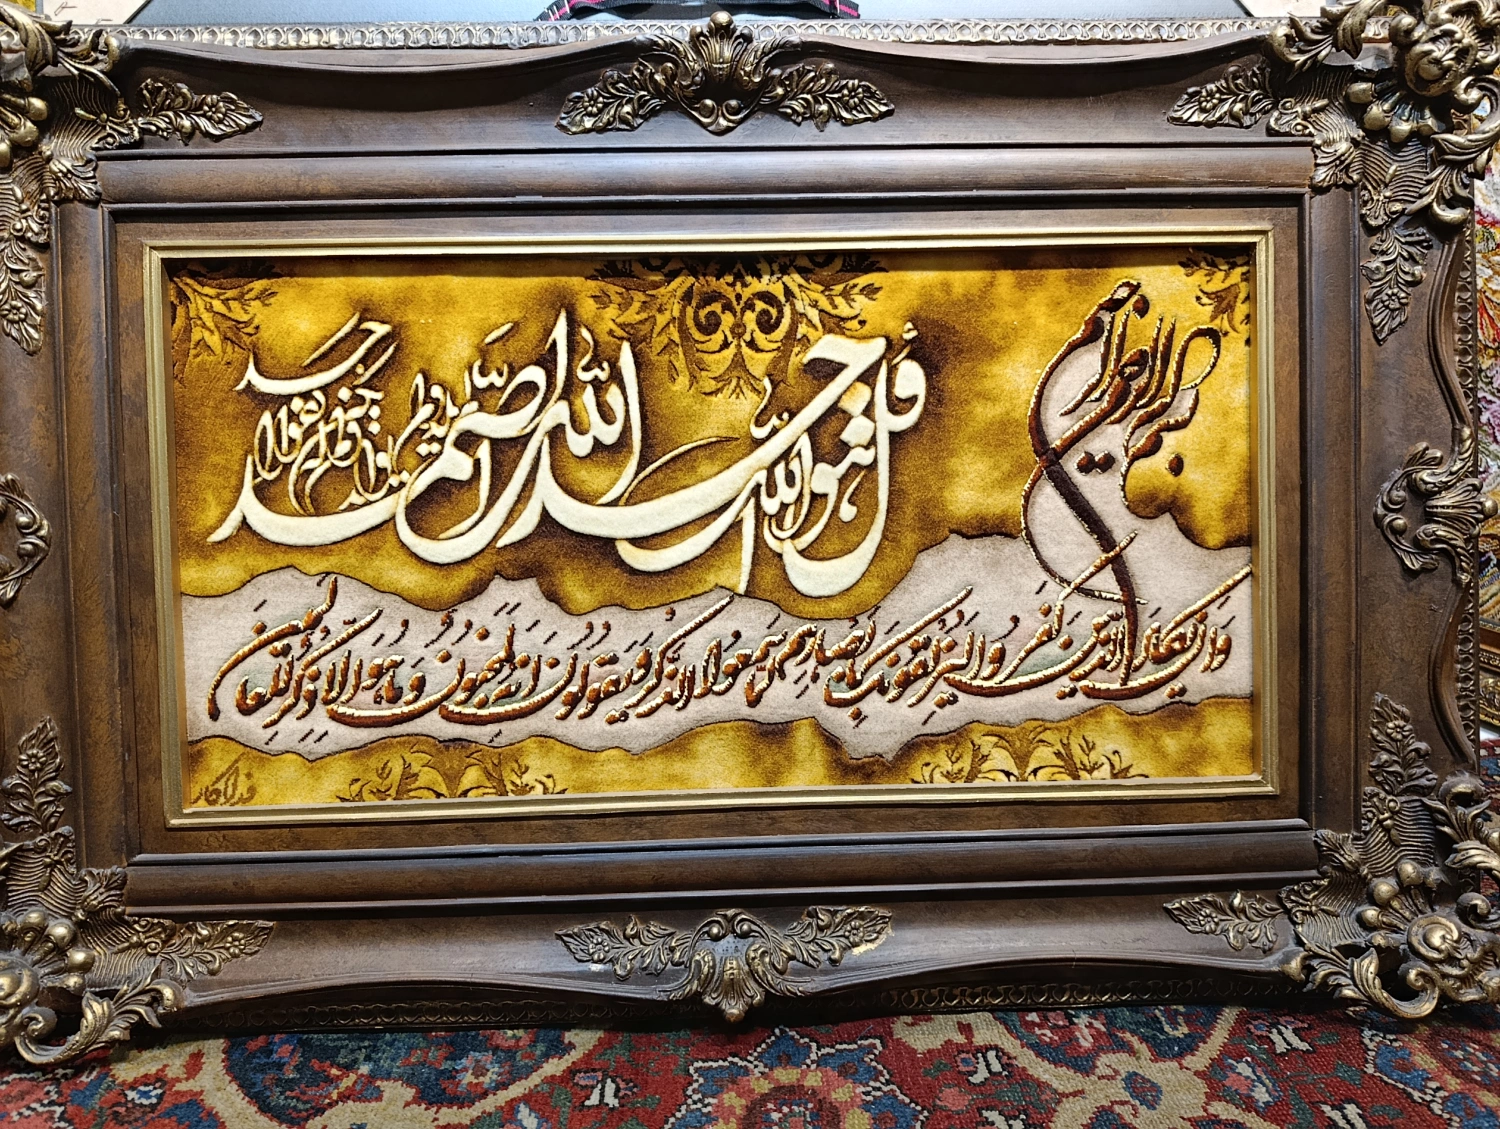 بسم الله الرحمن الرحیم
قل هو الله احد الله الصمد لم یلد ولم یولد ولم یکن له کفوا احد
وَاِن یَکادُ الَّذینَ کَفَروا لَیُزلِقونَکَ بِاَبصارِهِم لَمّا سَمِعُوا الذِّکرَ وَ یَقولونَ اِنَّهُ لَمَجنونٌ وَ ما هُوَ اِلّا ذِکرٌ لِلعالَمینَ
فداکار